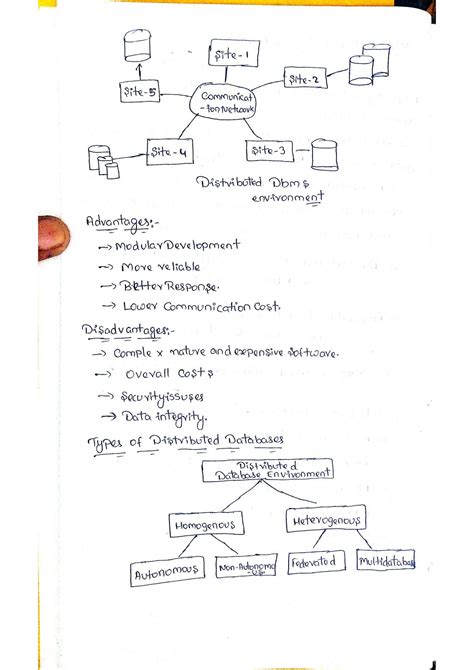 Site-1
Site-2
Site-5
Communicat
-tion Network
Site-4
Site-3
Distributed Dbms
environment
Advantages:-
→ Modular Development
→ More reliable
→ Better Response.
→ Lower Communication Cost.
Disadvantages:-
→ Complex nature and expensive software.
→ Overall Costs
→ Securityissuses
→ Data integrity.
Types of Distributed Databases
Distributed
Database Environment
Homogenous
Heterogenous
Autonomous
Non-Autonomo
-us
Federated
Multidatabase